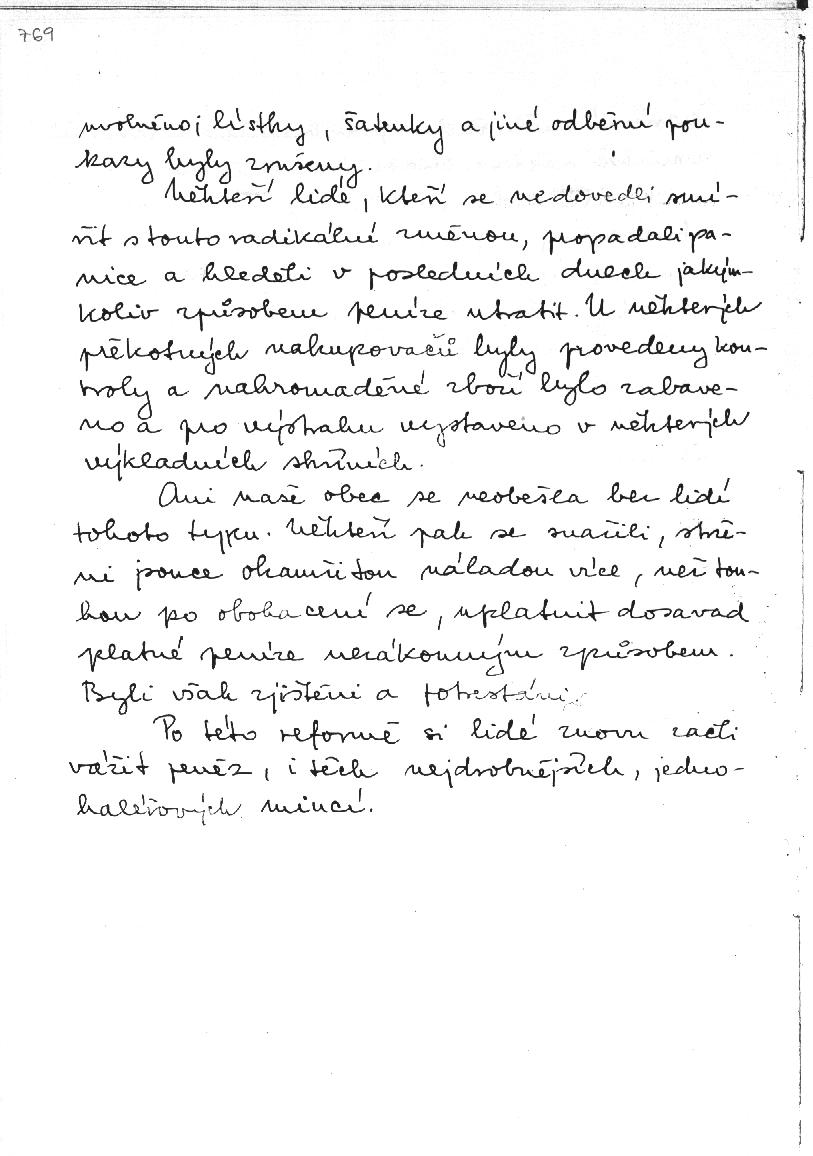 769
uvolněno; lístky, šatenky a jiné odběrní pou-
kazy byly zrušeny.
Někteří lidé, kteří se nedovedli smí-
řit s touto radikální změnou, propadali pa-
nice a hleděli v posledních dnech jakým-
koliv způsobem peníze utratit. U některých
překotných nakupovačů byly provedeny kon-
troly a nahromaděné zboží bylo zabave-
no a pro výstrahu vystaveno v některých
výkladních skříních.
Ani naše obec se neobešla bez lidí
tohoto typu. Někteří pak se snažili, strže-
ni pouze okamžitou náladou více, než tou-
hou po obohacení se, uplatnit dosavad
platné peníze nezákonným způsobem.
Byli však zjištěni a potrestáni.
Po této reformě si lidé znovu začli
vážit peněz, i těch nejdrobnějších, jedno-
haléřových mincí.